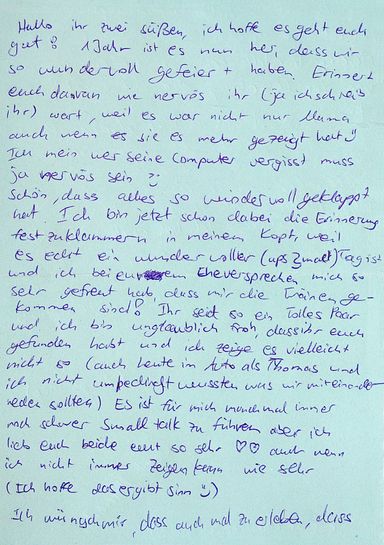 Hallo ihr zwei süßen, ich hoffe es geht euch
gut! 1 Jahr ist es nun her, dass wir
so wundervoll gefeiert haben. Erinnert
euch daran wie nervös ihr (ja ich schreib
ihr) wart, weil es war nicht nur Mama
auch wenn es sie es mehr gezeigt hat :)
Ich mein wer seine Computer vergisst muss
ja nervös sein :)
schön, dass alles so wundervoll geklappt
hat. Ich bin jetzt schon dabei die Erinnerung
festzuklammern in meinem Kopf, weil
es echt ein wundervoller (ups 2 mal) Tag ist
und ich bei eurem Eheversprechen mich so
sehr gefreut hab, dass mir die Tränen ge-
kommen sind! Ihr seid so ein Tolles Paar
und ich bin unglaublich froh, dass ihr euch
gefunden habt und ich zeige es vielleicht
nicht so (auch heute im Auto als Thomas und
ich nicht wussten was wir miteinander
reden sollten) Es ist für mich manchmal immer
noch schwer Small talk zu führen aber ich
lieb euch beide so sehr ♡♡ auch wenn
ich nicht immer zeigen kann wie sehr
(Ich hoffe das ergibt sinn :))
Ich wünsch mir, dass auch mal zu erleben, dass